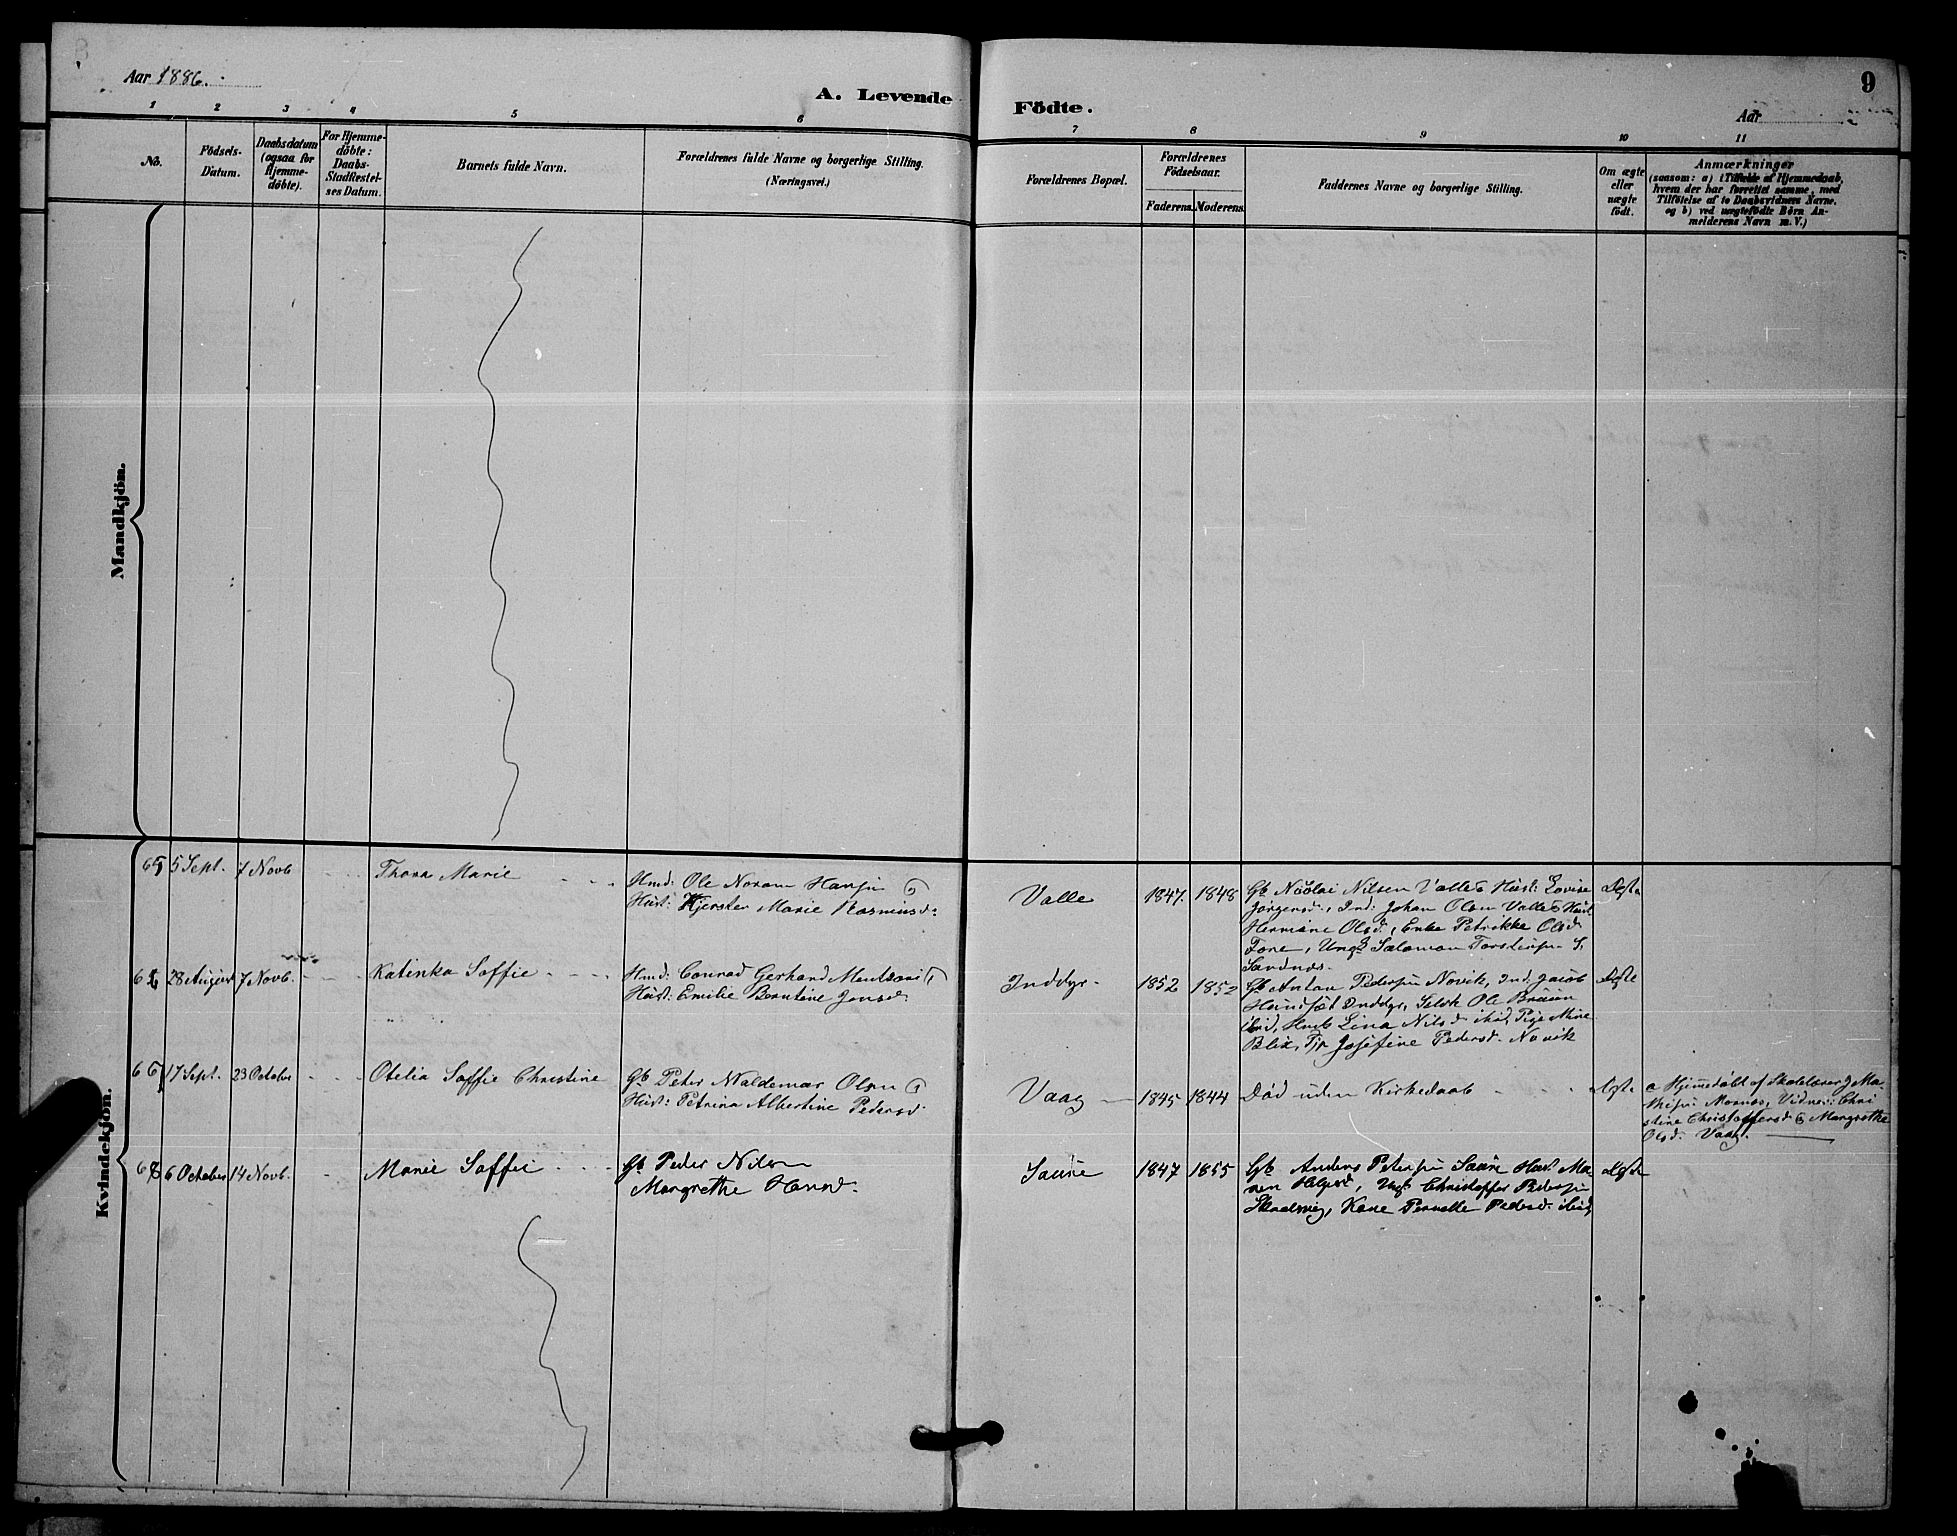 Aar 1886.
A. Levende Födte.
9
Aar
1 2 3 4 5 6 7 8 9 10 11
No.
Födsels-
Datum.
Daabsdatum
(ogsaa for
Hjemme-
döbte).
For Hjemme-
döbte:
Daabs-
Stadfæstel-
ses Datum.
Barnets fulde Navn.
Forældrenes fulde Navne og borgerlige Stilling.
(Næringsvei.)
Forældrenes Bopæl.
Forældrenes
Födselsaar.
Faderens.
Moderens.
Faddernes Navne og borgerlige Stilling.
Om ægte
eller
uægte
födt.
Anmærkninger
(saasom: a) i Tilfælde af Hjemmedaab,
hvem der har forrettet samme, med
Tilföielse af to Daabsvidners Navne.
og b) ved uægtefödte Börn An-
melderens Navn m. V.)
Mandkjön.
Kvindekjön.
65 5 Sept. 7 Novb
Thora Marie
Hmd: Ole Noram Hansen
Hust: Kjersten Marie Rasmusd:
Valle 1847. 1848
Gb Nicolai Nilsen Valle & Hust: Lovise
Jørgensd., Ind: Johan Olsen Valle & Hust
Hermine Olsd, Enke Petrikke Olsd
Fore, Ungk Salomon Torstensen S.
Sandnæs.
Ægte
66 28 August 7 Novb.
Katinka Soffie
Hmd: Conrad Gerhard
Hust: Emilie Berntine Jensd
Inddyr 1852 1852
Gb Anton Pedersen Novik, Ind: Jacob
Inddyr, Selvk Ole Bruun
ibid, Lina Nilsd ibid, Pige Mine
Blix, Josefine Pedersd. Novik
Ægte
67 17 Sept. 23 October
Otelia Soffie Christine
Gb Peter Waldemar Olsen
Hust: Petrina Albertine Pedersd.
Vaag 1845 1844
Død uden Kirkedaab
Ægte
a Hjemmedöbt af Skolelærer J Ma-
thisen Mornæs, Vidner: Chri
stine Christoffersd & Margrethe
Olsd. Vaag.
68 6 October 14 Novb.
Marie Soffie
Gb Peder Nilsen
Margrethe Hansd.
Saurie 1847 1855
Gb Anders Petersen Saurie Hust Ma-
ren Helgesd, Ungk Christoffer Pedersen
Kone Pernelle Pedersd. ibid
Ægte